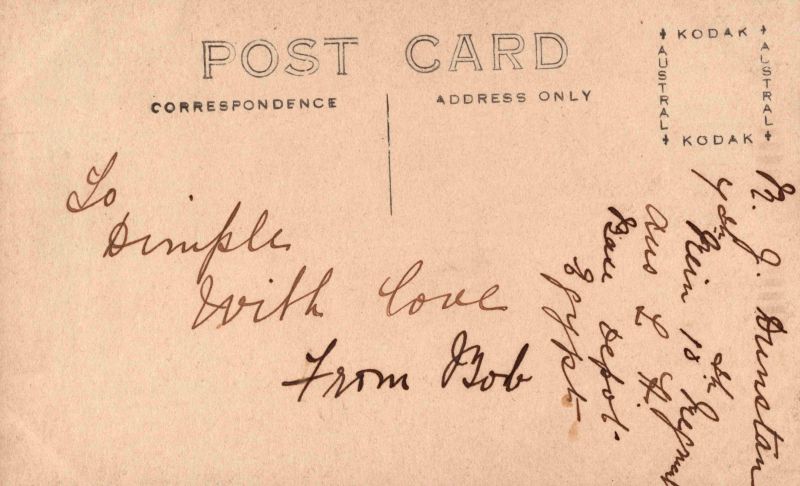 POST CARD
CORRESPONDENCE
ADDRESS ONLY
KODAK
AUSTRAL
AUSTRAL
KODAK
To
Dimple
With love
From Bob
R. J. Dunstan
Rein 10th
Aus L. H.
Base Depot.
Egypt